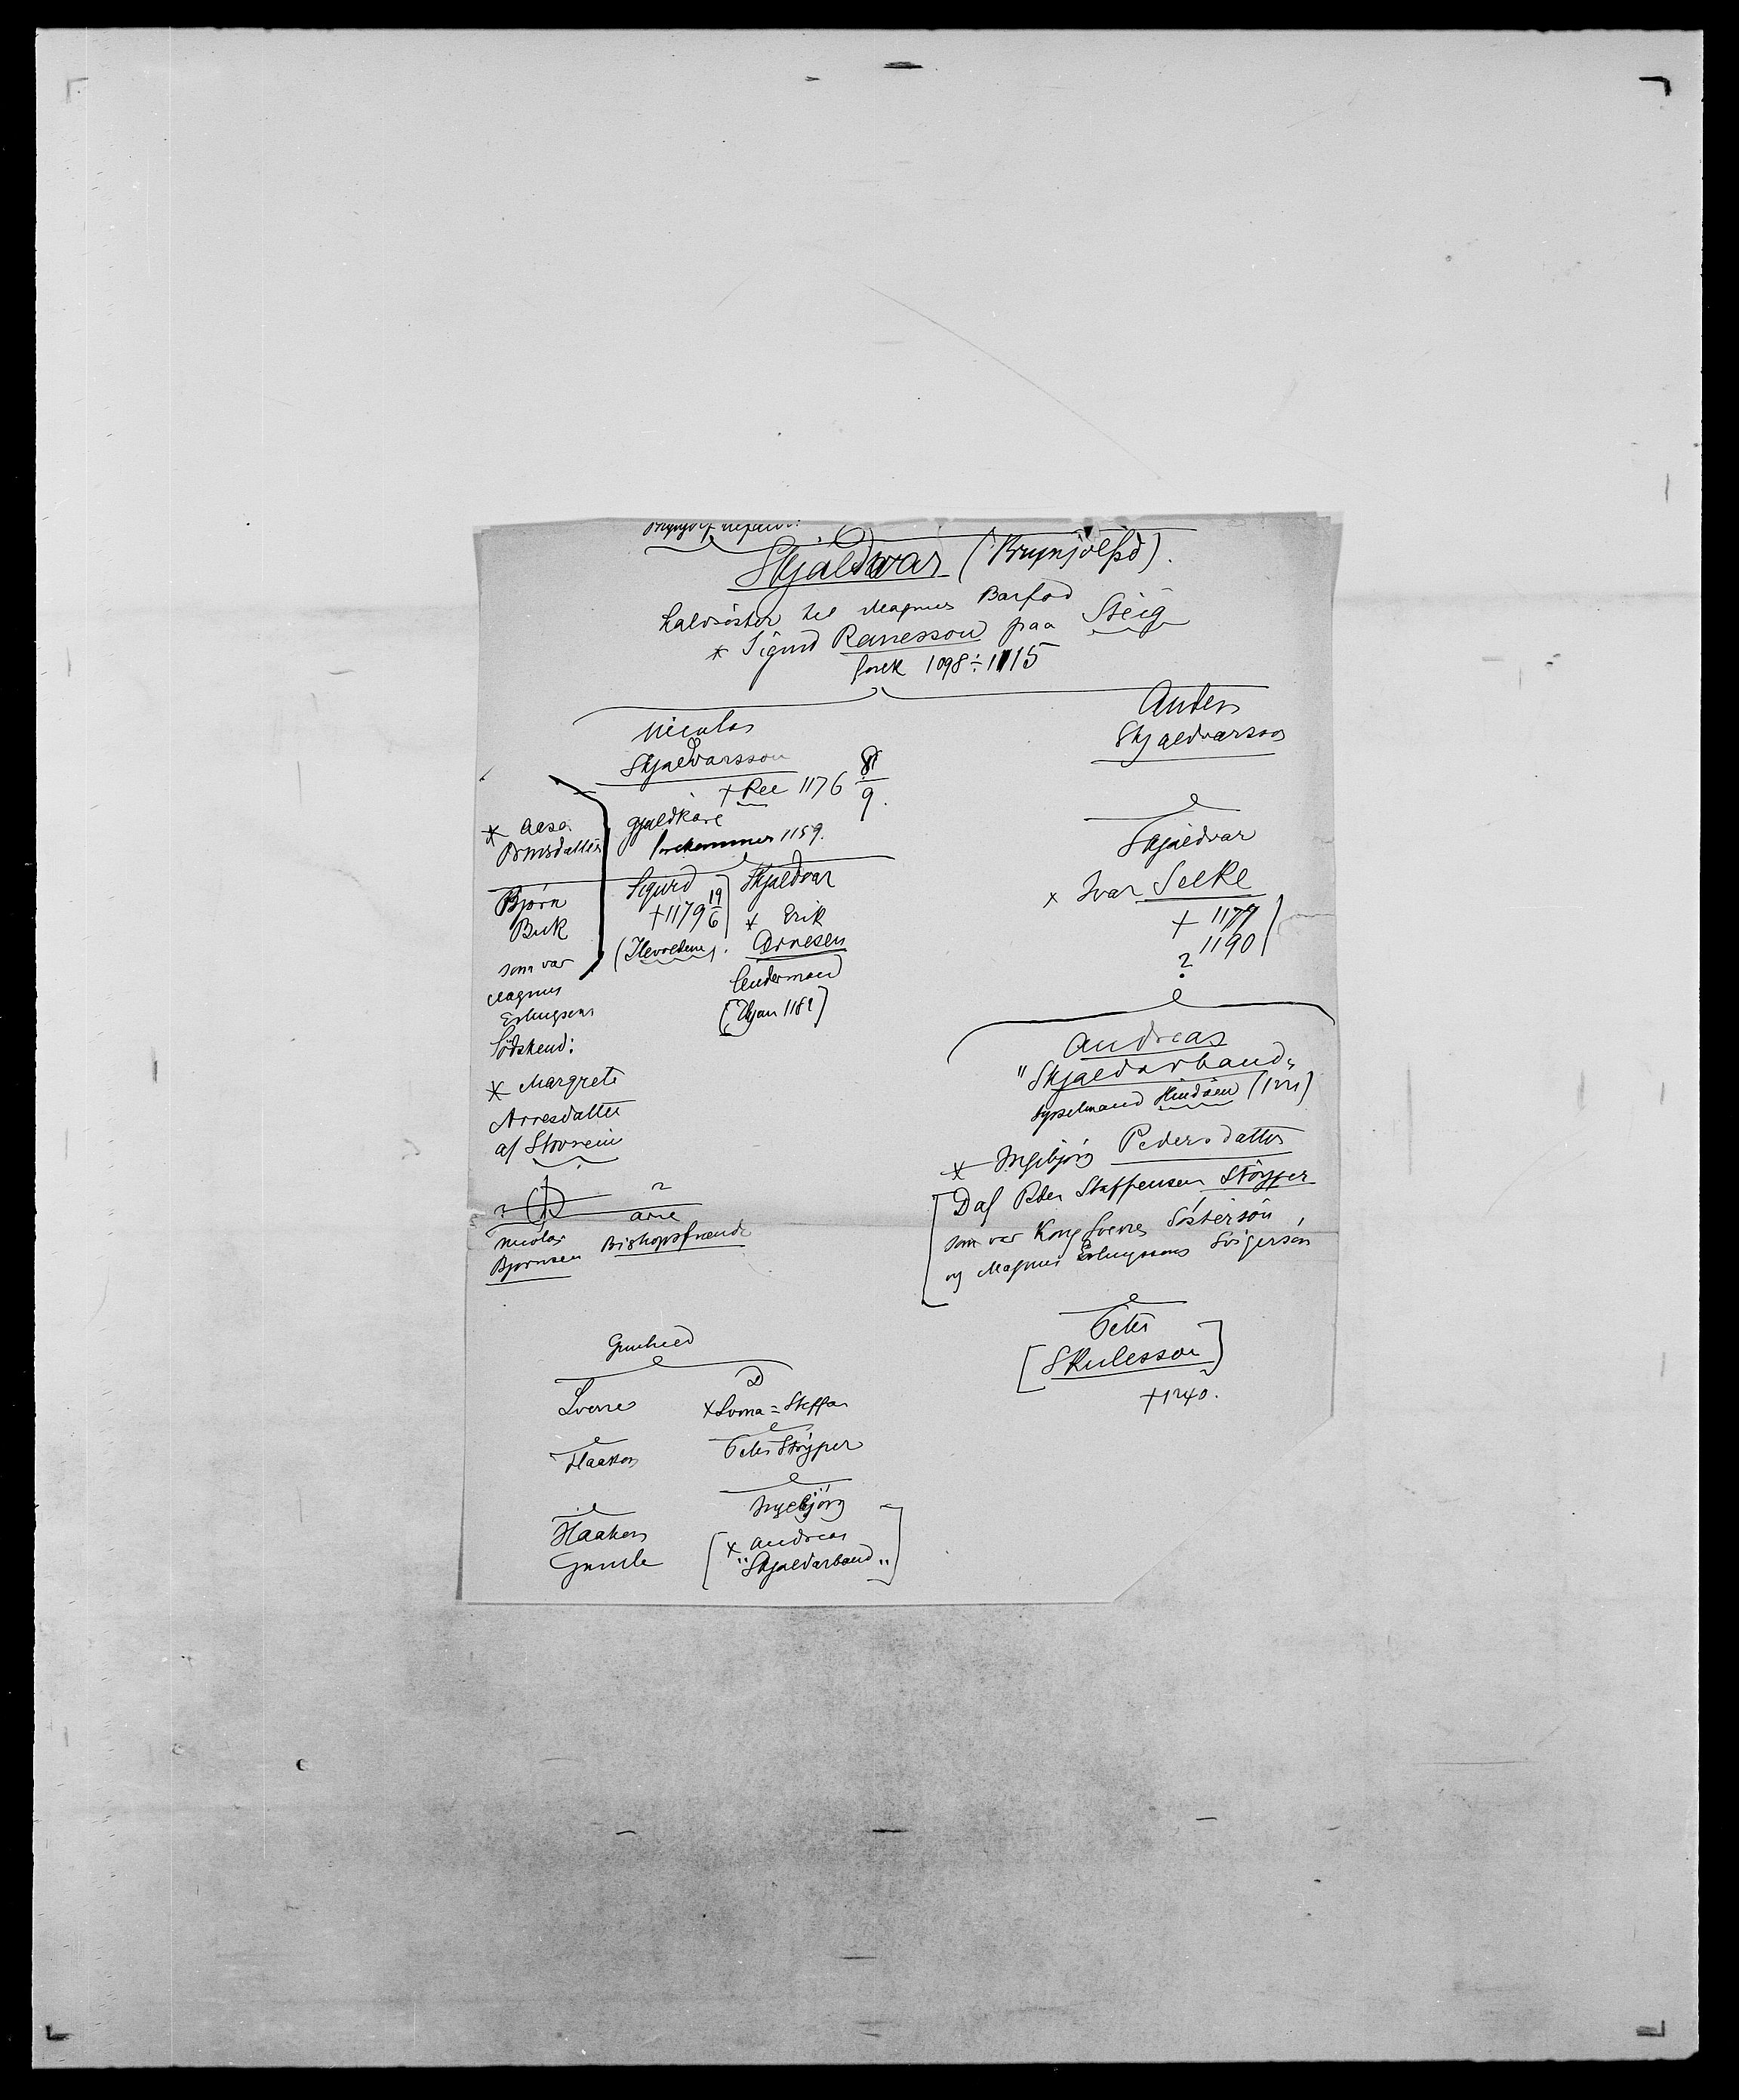 Skjaldvar (Brynjolfsd).
halvsöster til Magnus Barfod
* Sigurd Ranesson paa Steig
forek 1098÷1115
Nicolas
Skjaldvarsson
+ Ree 1176 8/9.
* Aasa
gjaldkare
forekommer 1159.
Björn
Buk
som var
Magnus
Erlingsons
Södskend:
* Margrete
Arnesdatter
af Stovrein
Sigurd
+ 1179 19/6
(Ilevoldene).
Skjaldvar
* Erik
Arnesen
lendermand
? ?
Nicolas
Bjørnsen
Arne
Bishopsfrænde
Anders
Skjaldvarsson
Skjaldvar
x Ivar Selke
+ 1177
1190
?
Andreas
"Skjaldarband"
sysselmand Hindöen
* Ingebjörg Pedersdatter
[Daf Peter Steffensen Stöyper
som var Kong Sverres Söstersön,
og Magnus Erlingssons Svigersön
Peter
[Skulesson]
+ 1240.
Gunhild
Sverre
D
x Svina = Steffan
Haakon
Peter Stöyper
Haakon
Gamle
Ingebjörg
[x Andreas
"Skjaldarband"]